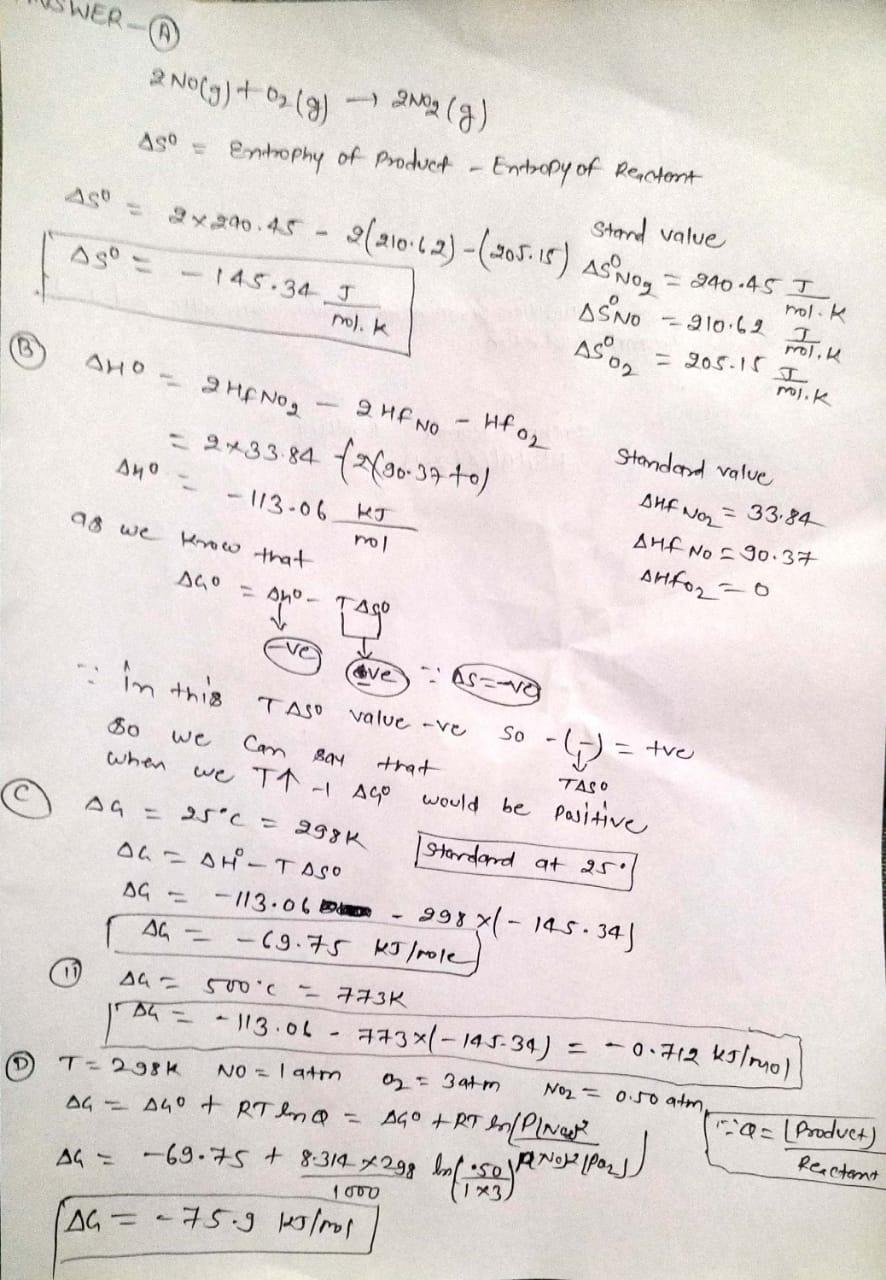 ANSWER - (A)
2 NO(g) + O2(g) → 2NO2 (g)
ΔSº = Entrophy of Product - Entropy of Reactant
ΔSº = 2 x 240.45 - 2(210.62) - (205.15)
ΔSº = - 145.34 J/mol. K
Stand value
ΔSºNO2 = 240.45 J/mol. K
ΔSºNO = 210.62 J/mol. K
ΔSºO2 = 205.15 J/mol. K
(B) ΔHº = 2 Hf NO2 - 2 Hf NO - Hf O2
= 2 x 33.84 - (2(90.37 + 0)
ΔHº = - 113.06 KJ/mol
Standard value
ΔHf NO2 = 33.84
ΔHf NO = 90.37
ΔHf O2 = 0
as we know that
ΔGº = ΔHº - TΔSº
-ve +ve ∵ ΔS = -ve
∵ in this TΔSº value -ve so -(-) = +ve
TΔSº
so we can say that
when we T↑ → ΔGº would be Positive
(C) ΔG = 25°C = 298K
Standard at 25°
ΔG = ΔHº - TΔSº
ΔG = -113.06 - 298 x (- 145.34)
ΔG = -69.75 KJ/mole
(ii) ΔG = 500°C = 773K
ΔG = -113.06 - 773 x (- 145.34) = - 0.712 KJ/mol
(D) T = 298K NO = 1 atm O2 = 3 atm NO2 = 0.50 atm
ΔG = ΔGº + RT ln Q = ΔGº + RT ln (P(NO2)²/P(NO)² (PO2))
∵ Q = (Product)/Reactant
ΔG = -69.75 + 8.314 x 298/1000 ln (.50/1x3)
ΔG = - 75.9 KJ/mol